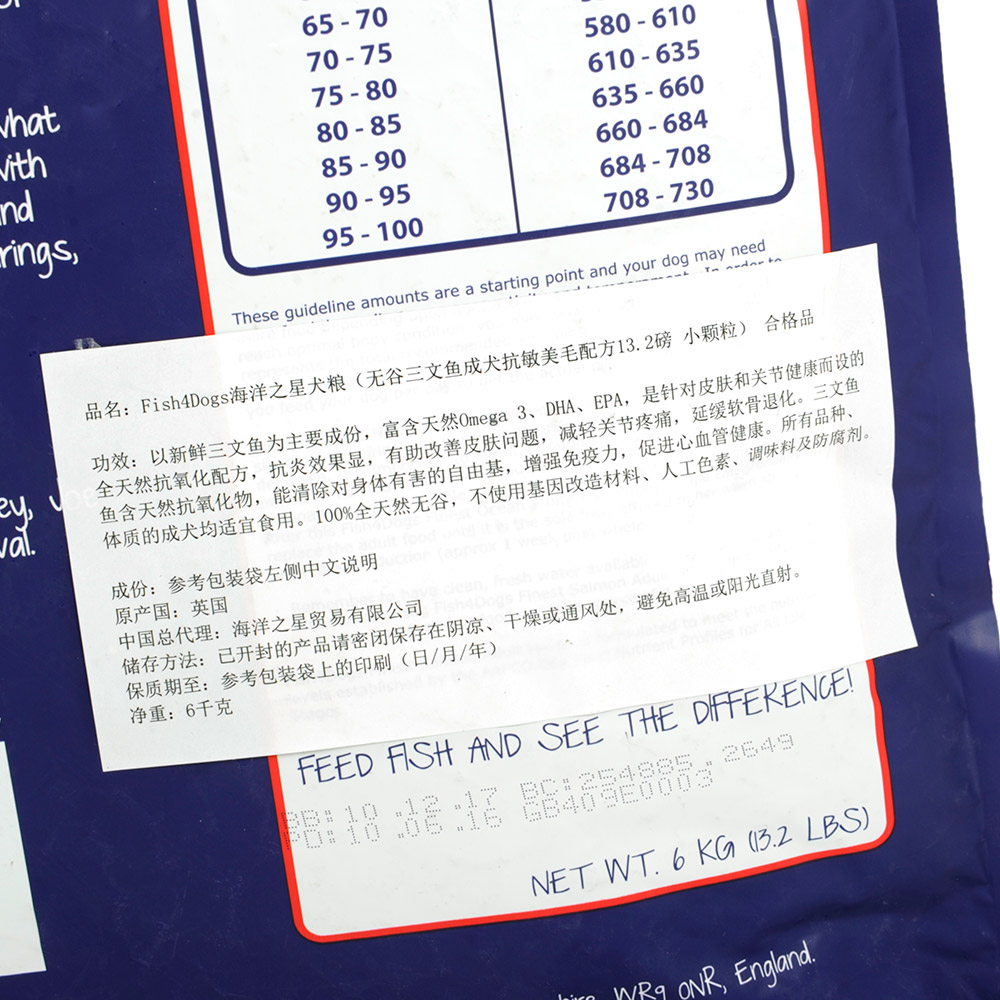 65 - 70
580 - 610
70 - 75
610 - 635
75 - 80
635 - 660
80 - 85
660 - 684
85 - 90
684 - 708
90 - 95
708 - 730
95 - 100
what
with
and
rings,
These guideline amounts are a starting point and your dog may need
品名：Fish4Dogs海洋之星犬粮（无谷三文鱼成犬抗敏美毛配方13.2磅 小颗粒） 合格品
功效：以新鲜三文鱼为主要成份，富含天然Omega 3、DHA、EPA，是针对皮肤和关节健康而设的
全天然抗氧化配方，抗炎效果显，有助改善皮肤问题，减轻关节疼痛，延缓软骨退化。三文鱼
鱼含天然抗氧化物，能清除对身体有害的自由基，增强免疫力，促进心血管健康。所有品种、
体质的成犬均适宜食用。100%全天然无谷，不使用基因改造材料、人工色素、调味料及防腐剂。
成份：参考包装袋左侧中文说明
原产国：英国
中国总代理：海洋之星贸易有限公司
储存方法：已开封的产品请密闭保存在阴凉、干燥或通风处，避免高温或阳光直射。
保质期至：参考包装袋上的印刷（日/月/年）
净重：6千克
FEED FISH AND SEE THE DIFFERENCE!
BB:10 .12 .17 BC:254885 . 2649
PD:10 .06 .16 GB409E0003
NET WT. 6 KG (13.2 LBS)
WR9 0NR, England.